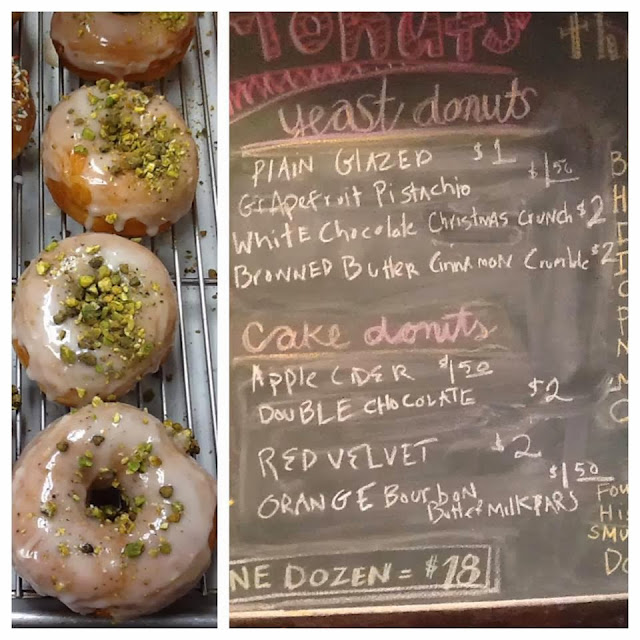 DONUTS
yeast donuts
PLAIN GLAZED $1
GrApefruit Pistachio $1.50
White Chocolate Christmas Crunch $2
Browned Butter Cinnamon Crumble $2
cake donuts
Apple CIDER $1.50
DOUBLE CHOCOLATE $2
RED VELVET $2
ORANGE Bourbon $1.50
ButterMilkBARS
NE DOZEN = $18